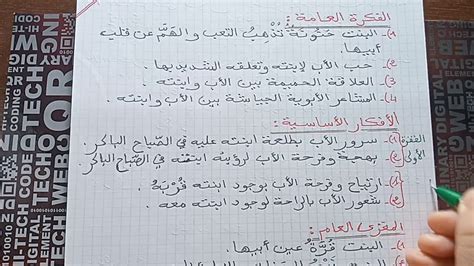 الفكرة العامة :
1)- البنت حنونة تُذْهِبُ التعب والهَمّ عن قلب
أبيها.
2)- حب الأب لإبنته وتعلقه الشديد بها .
3)- العلاقة الحميمة بين الأب وابنته .
4)- المشاعر الأبوية الجياشة بين الأب وابنته .
الأفكار الأساسية :
الفقرة 1)- سرور الأب بطلعة ابنته عليه في الصّباح الباكر.
الأولى 2)- بهجة وفرحة الأب لرؤية ابنته في الصّباح الباكر.
1)- ارتياح وفرحة الأب بوجود ابنته قُرْبَهُ
2)- شعور الأب بالراحة لوجود ابنته معه .
المغزى العام :
1)- البنت قُرَّةُ عين أبيها.
HI-TECH
CODING
WEB
DIGITAL
TECHNO